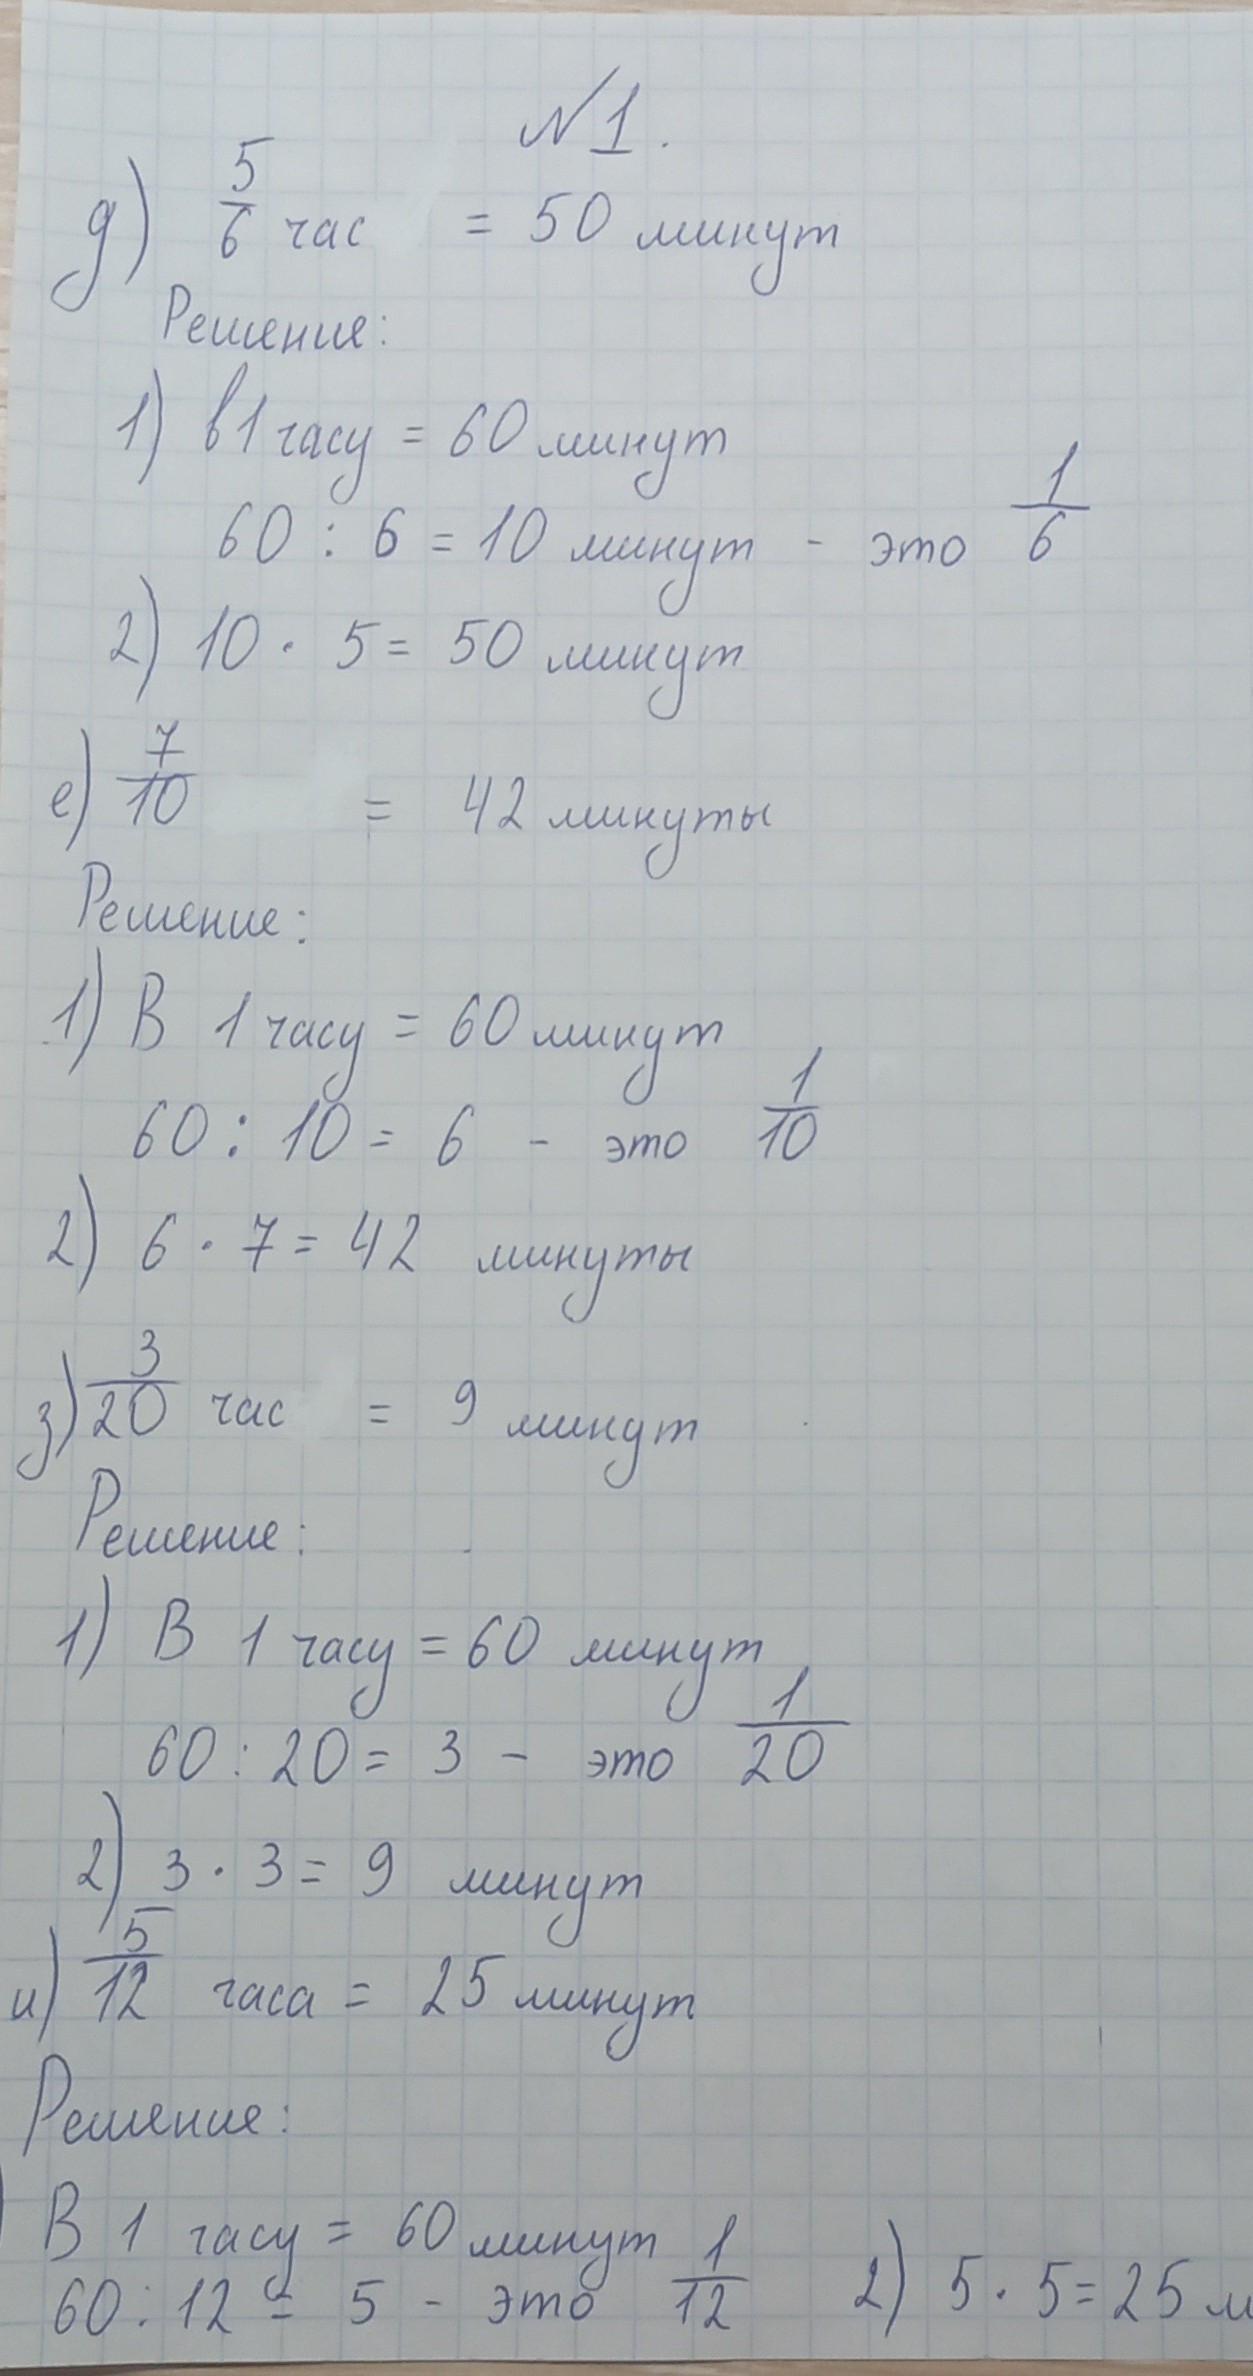 №1.
д) 5/6 час = 50 минут
Решение:
1) в 1 часу = 60 минут
60 : 6 = 10 минут - это 1/6
2) 10 · 5 = 50 минут
е) 7/10 = 42 минуты
Решение:
1) В 1 часу = 60 минут
60 : 10 = 6 - это 1/10
2) 6 · 7 = 42 минуты
з) 3/20 час = 9 минут
Решение:
1) В 1 часу = 60 минут
60 : 20 = 3 - это 1/20
2) 3 · 3 = 9 минут
и) 5/12 часа = 25 минут
Решение:
) В 1 часу = 60 минут
60 : 12 = 5 - это 1/12 2) 5 · 5 = 25 м